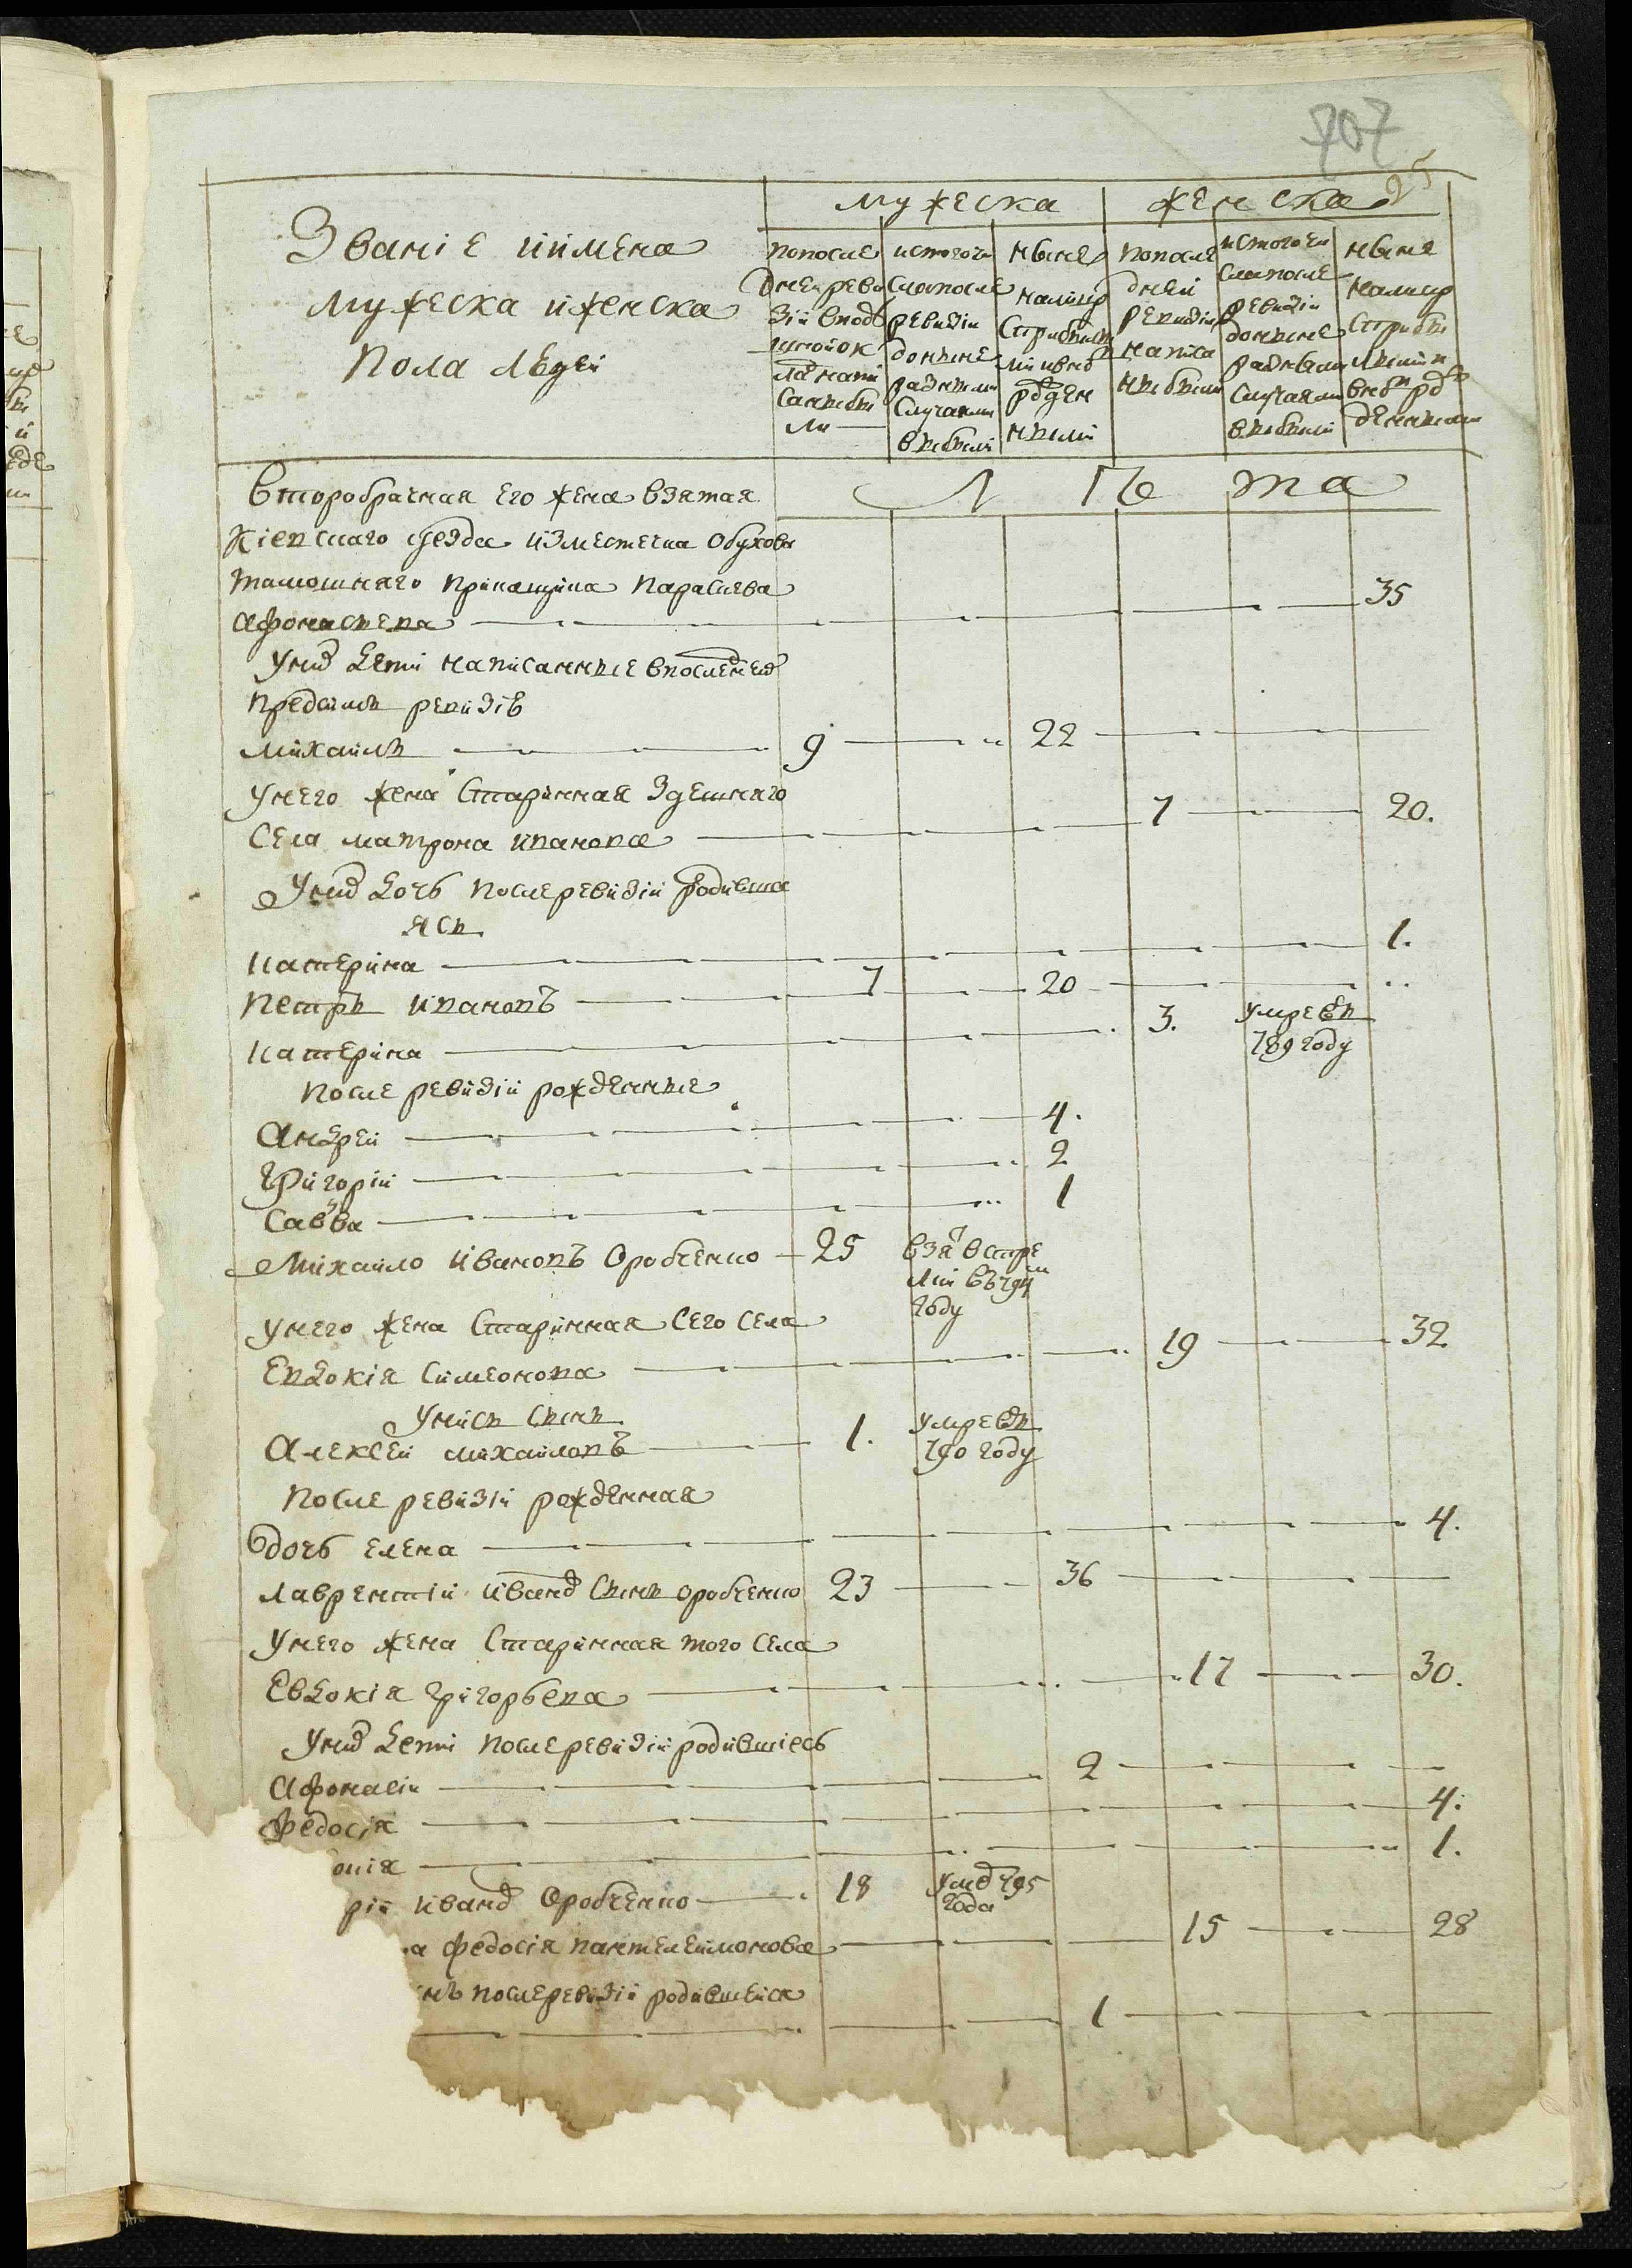 707
25
Званіе и имена
мужеска и женска
пола людей
мужеска
женска
по после
дней реви
зіи в под
написа
ны были
и с того чи
сла после
ревизіи
до ныне
разными
случаями
выбыли
ныне
на лицо
с прибылы
ми и внов
рожден
ными
по после
дней
ревизіи
написа
ны были
и с того чи
сла после
ревизіи
до ныне
разными
случаями
выбыли
ныне
на лицо
с прибы
лыми и
внов рож
денными
лета
Второбрачная его жена взятая
кіевскаго уезда из местечка обухова
тамошнаго прикащика Параскева
Афонасьева 35
У них дети написанные в последней
пред сим ревизіи
Михаилъ 9 22
У него жена старинная здешняго
села матрона иванова 7 20.
У них дочь после ревизіи родивша
яся
катерина 1.
Петръ ивановъ 7 20
катерина 3. умре въ
789 году
После ревизіи рожденные
Андрей 4.
Григорій 2
Савва 1
Михайло Ивановъ Оробченко 25 взят в стре
лки въ 794м
году
У него жена старинная сего села
Евдокія Симеонова 19 32
У них сынъ
Алексей михаиловъ 1. умре въ
790 году
После ревизіи рожденная
дочь елена 4.
Лаврентій иванов сынъ оробченко 23 36
У него жена старинная того села
Евдокія григорьева 17 30.
У них дети после ревизіи родившіесь
Афонасій 2
Федосія 4.
онія 1.
рій иванов Оробченко 18 умре 795
года
а федосія пантелеимонова 15 28
нъ после ревизіи родившейся
1